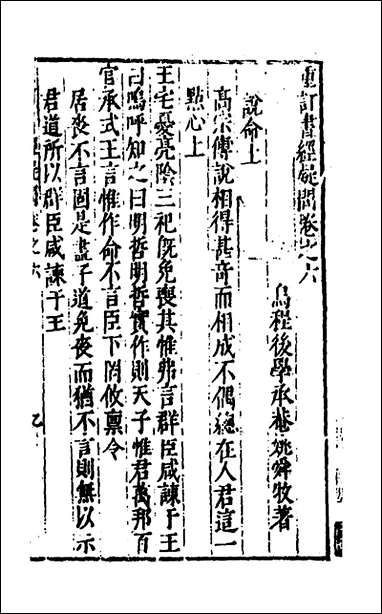 重訂書經疑問卷之六
烏程後學承菴姚舜牧著
說命上
高宗傳說相得甚奇而相成不偶總在人君這一
點心上
王宅憂亮陰三祀旣免喪其惟弗言群臣咸諫于王
曰嗚呼知之曰明哲明哲實作則天子惟君萬邦百
官承式王言惟作命不言臣下罔攸稟令
居喪不言固是盡子道免喪而猶不言則無以示
君道所以群臣咸諫于王